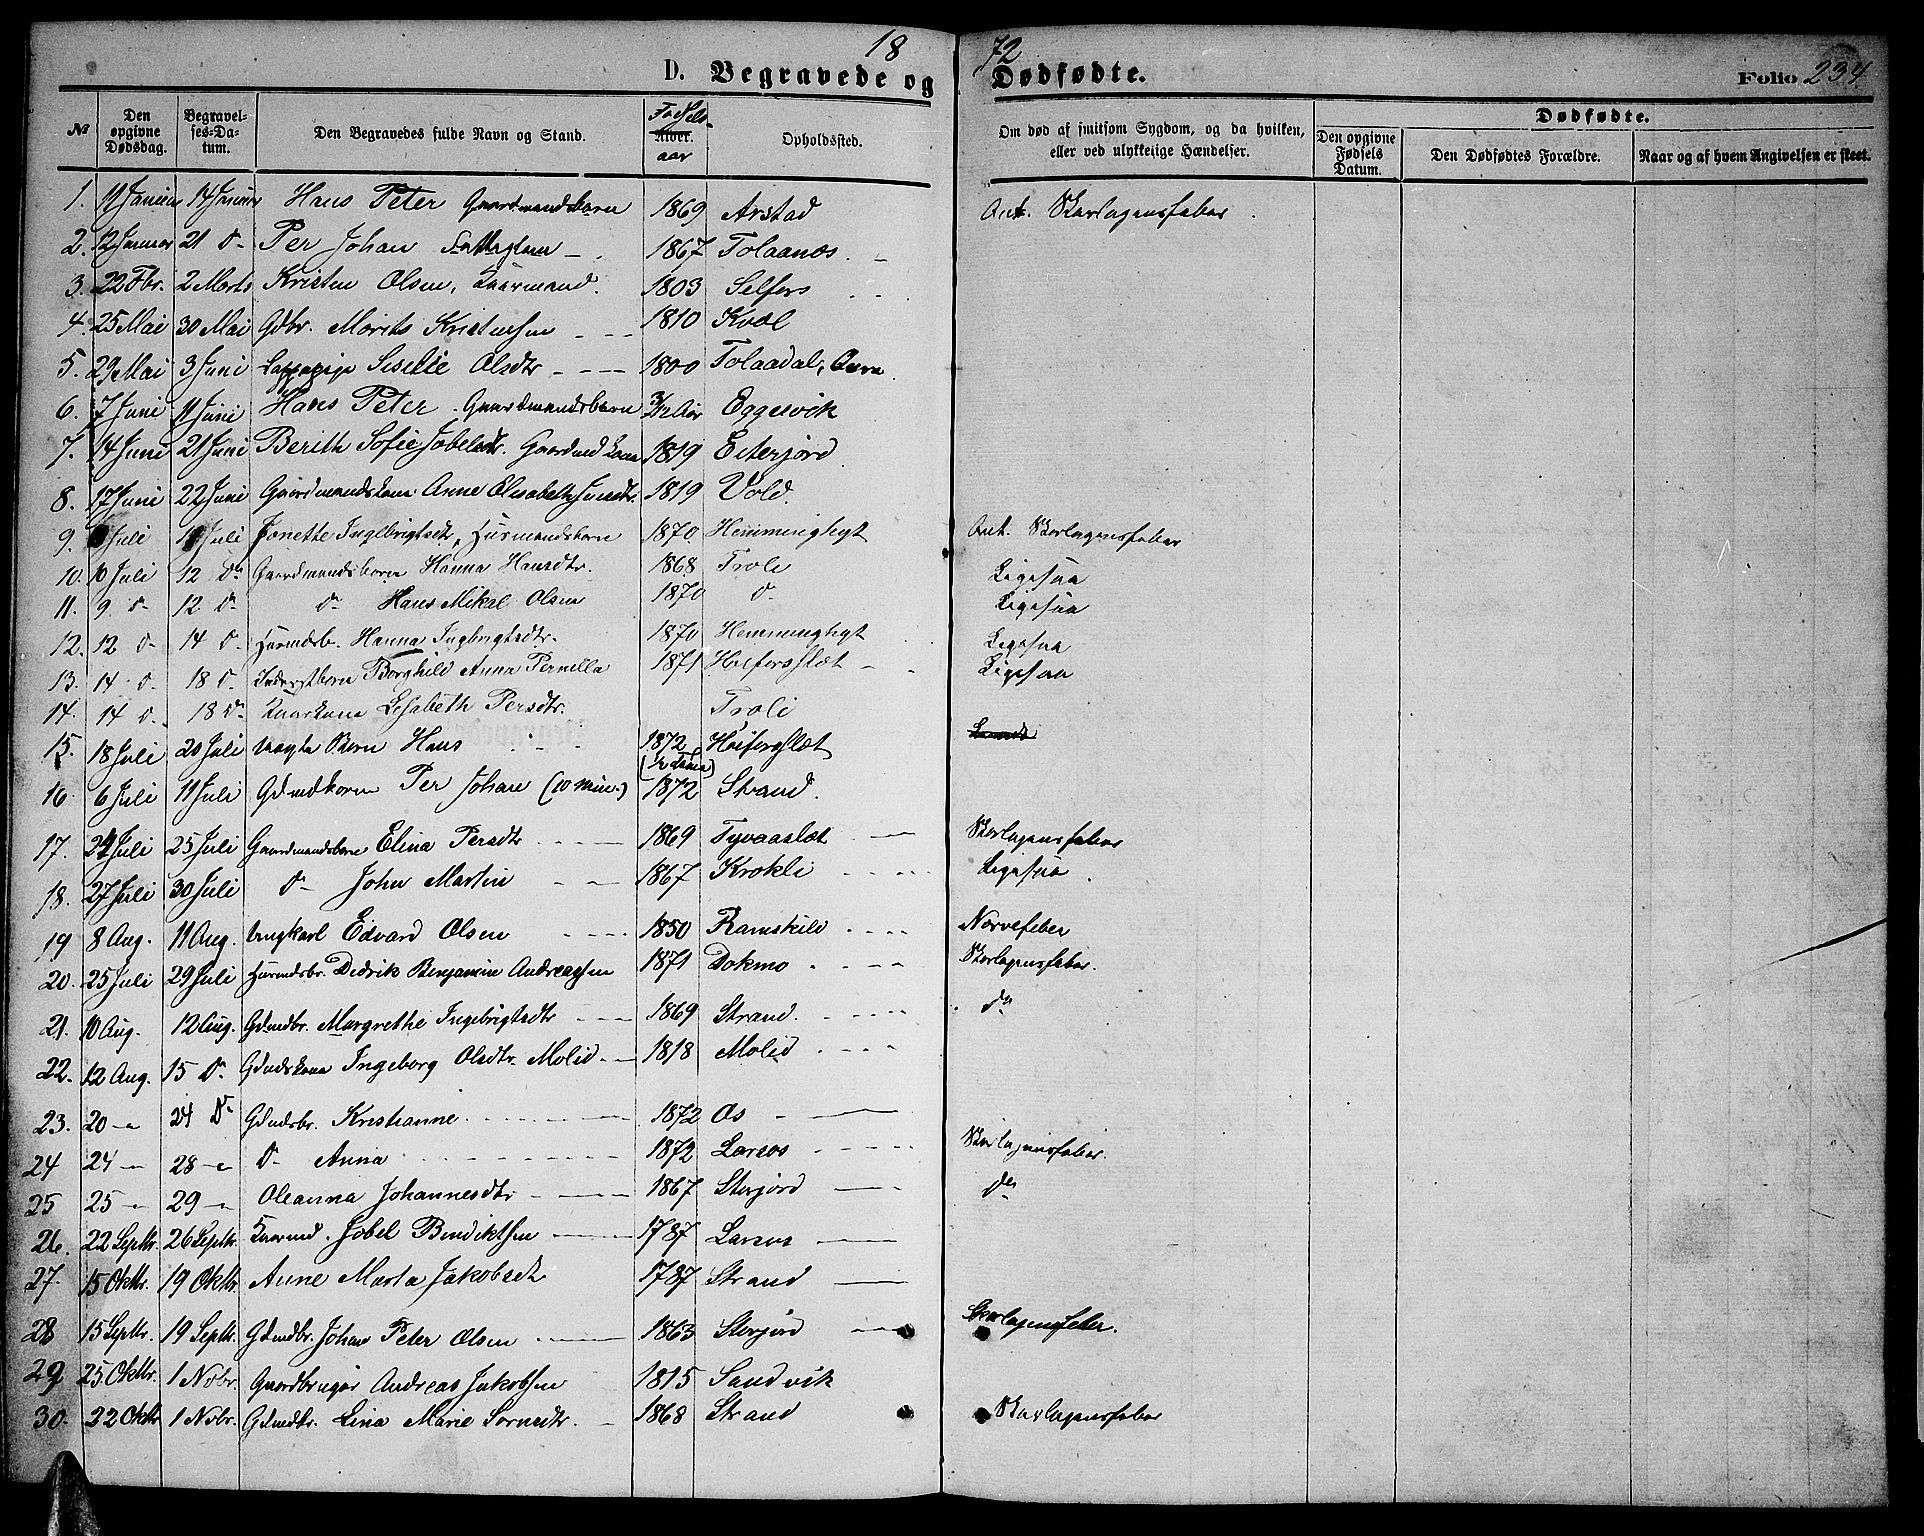 1872
D. Begravede og Dødfødte. Folio 234
№ | Den opgivne Dødsdag. | Begravelses-Datum. | Den Begravedes fulde Navn og Stand. | Fødsels- Alder. aar | Opholdssted. | Om død af smitsom Sygdom, og da hvilken, eller ved ulykkelige Hændelser. | Dødfødte. Den opgivne Fødsels Datum. | Den Dødfødtes Forældre. | Naar og af hvem Angivelsen er skeet.
1. 11 Januar 14 Januar Hans Peter Gaardmandsbarn 1869 Arstad Ant. Skarlagensfeber
2. 12 Januar 21 do Per Johan 1867 Tolaanæs
3. 22 Fbr. 2 Marts Kristen Olsen, Kaarmand. 1803 Selfors
4. 25 Mai 30 Mai Gdbr. Morits Kristensen 1810 Kvæl
5. 29 Mai 3 Juni Lappepige Siselie Olsdtr 1800 Tolaadal,
6. 7 Juni 11 Juni Hans Peter Gaardmandsbarn 3/12 Aar Eggesvik
7. 14 Juni 21 Juni Berith Sofie Jobelsdtr. Gaardmd Kone 1819 Eiterjord
8. 17 Juni 22 Juni Gaardmandskone Anne Elisabeth 1819 Vold.
9. Juli Juli Jonette Ingebrigtsdtr, Husmandsbarn 1870 Hemminghygt Ant. Skarlagensfeber
10. 10 Juli 12 Do Gaardmandsbarn Hanna Hansdtr. 1868 Troli Ligesaa
11. 9 do 12 do do Hans Mikal Olsen 1870 do Ligesaa
12. 12 do 14 do Husmdsb. Hanna Ingbrigtsdtr. 1870 Hemminghygt Ligesaa
13. 14 do 18 do Inderstbarn Borghild Anna Pernella 1871 Høiforsslet Ligesaa
14. 14 do 18 do Kaarkone Lisabeth Persdtr. Troli
15. 18 Juli 20 Juli Uægte Barn Hans 1872 Høiforsslet
16. 6 Juli 11 Juli Gdmdbarn Per Johan (10 Min.) 1872 Strand.
17. 24 Juli 25 Juli Gaardmandsbarn Elina Persdtr 1869 Tyvaaslet Skarlagensfeber
18. 27 Juli 30 Juli do John Martin 1867 Krokli Ligesaa
19 8 Aug. 11 Aug. Ungkarl Edvard Olsen 1850 Ramskild Nervefeber
20. 25 Juli 29 Juli Husmdsbr. Didrik Benjamin Andreassen 1871 Dokmo Skarlagensfeber.
21. 10 Aug. 12 Aug. Gdmdbr. Margrethe Ingebrigtsdtr 1869 Strand. do
22. 12 Aug. 15 do Gdmdskone Ingeborg Olsdtr. Molid 1818 Molid
23. 20 " 24 do Gdmdsbr. Kristianne 1872 Os
24 24 " 28 " do Anna 1872 Larsos Skarlagensfeber.
25 25 " 29 " Oleanna Johannesdtr 1867 Storjord do
26. 22 Septbr. 26 Septbr. Kaarmd. Jobel Bendiktsen 1787 Larsos
27. 15 Oktbr. 19 Oktbr. Anne Marta Jakobsdtr 1787 Strand
28 15 Septbr. 19 Septbr. Gdmdbr. Johan Peter Olsen 1863 Storjord Skarlagensfeber.
29 25 Oktbr. 1 Novbr. Gaardbruger Andreas Jakobsen 1815 Sandvik
30. 22 Oktbr 1 Novbr. Gdmdbr. Lina Marie Sørnsdtr. 1868 Strand Skarlagensfeber